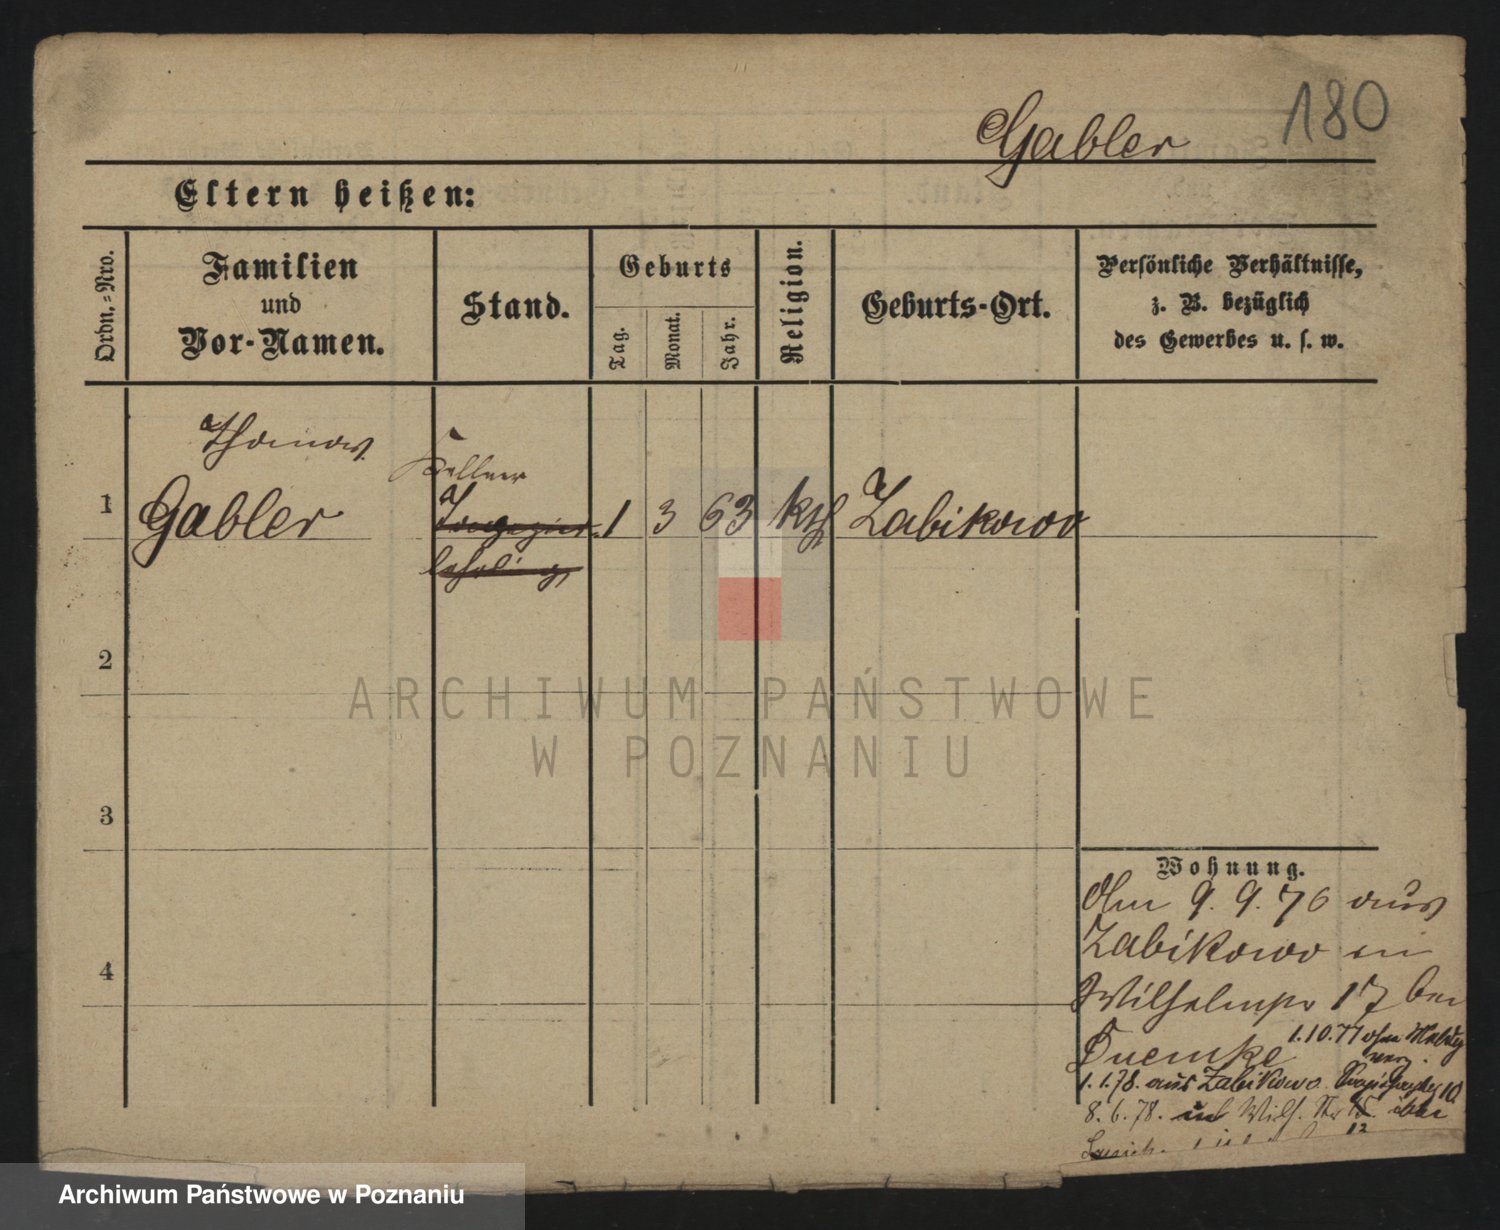 180
Gabler
Eltern heißen:
Ordn.-Nro.
Familien
und
Vor-Namen.
Stand.
Geburts
Tag.
Monat.
Jahr.
Religion.
Geburts-Ort.
Persönliche Verhältnisse,
z. B. bezüglich
des Gewerbes u. s. w.
Thomas
Kellner
1 Gabler 1 3 63 kth Zabikowo
lehrling
2
ARCHIWUM PAŃSTWOWE
W POZNANIU
3
Wohnung.
Am 9. 9. 76 aus
Zabikowo in
Wilhelmspl 17 bei
1.10.77
1.1.78. aus Zabikowo 10
8.6.78. Wilh. Str
12
4
Archiwum Państwowe w Poznaniu